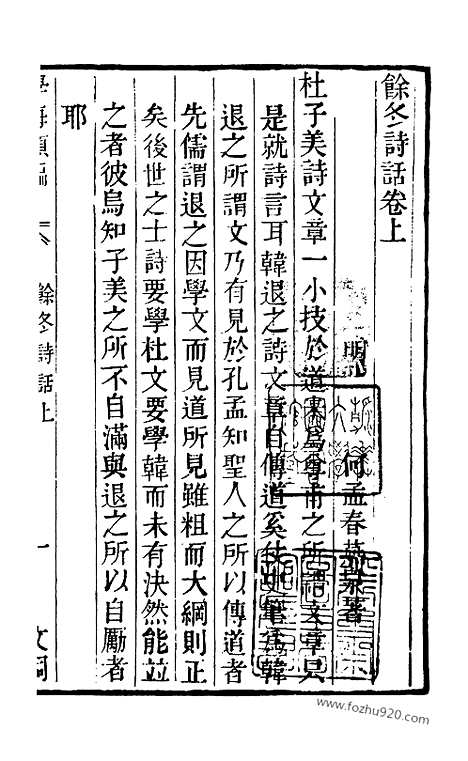 餘冬詩話卷上
明 何孟春 著
杜子美詩文章一小技於道未爲尊甫之所謂文章只
是就詩言耳韓退之詩文章自傳道奚仗史筆爲韓
退之所謂文乃有見於孔孟知聖人之所以傳道者
先儒謂退之因學文而見道所見雖粗而大綱則正
矣後世之士詩要學杜文要學韓而未有決然能並
之者彼烏知子美之所不自滿與退之所以自勵者
耶
餘冬詩話上
一
www.fozhu920.com